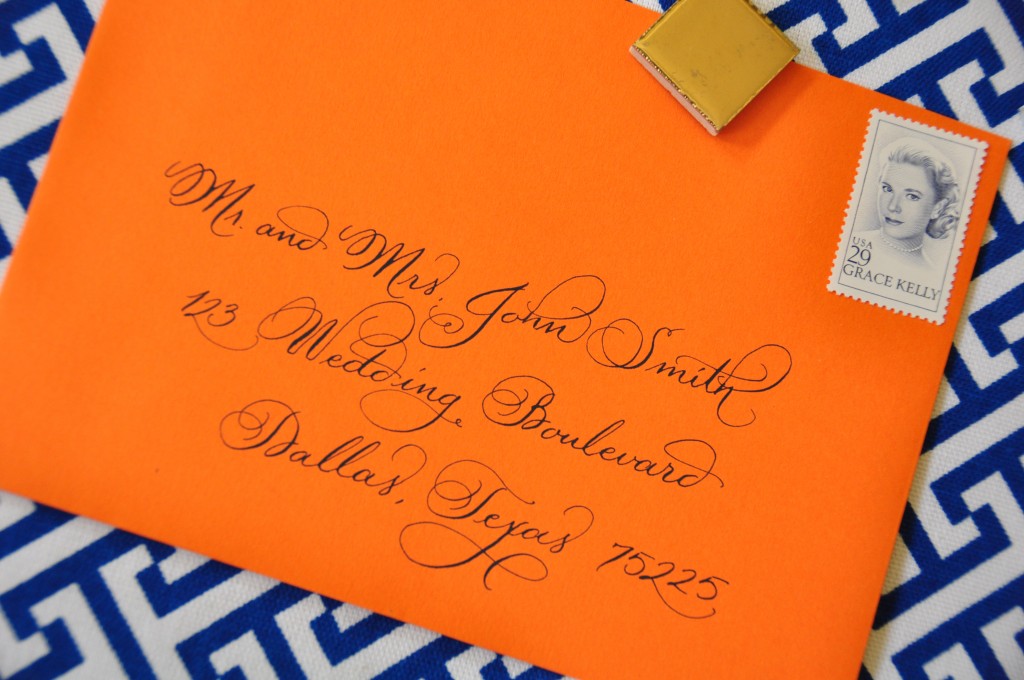 Mr. and Mrs. John Smith
123 Wedding Boulevard
Dallas, Texas 75225
USA
29
GRACE KELLY